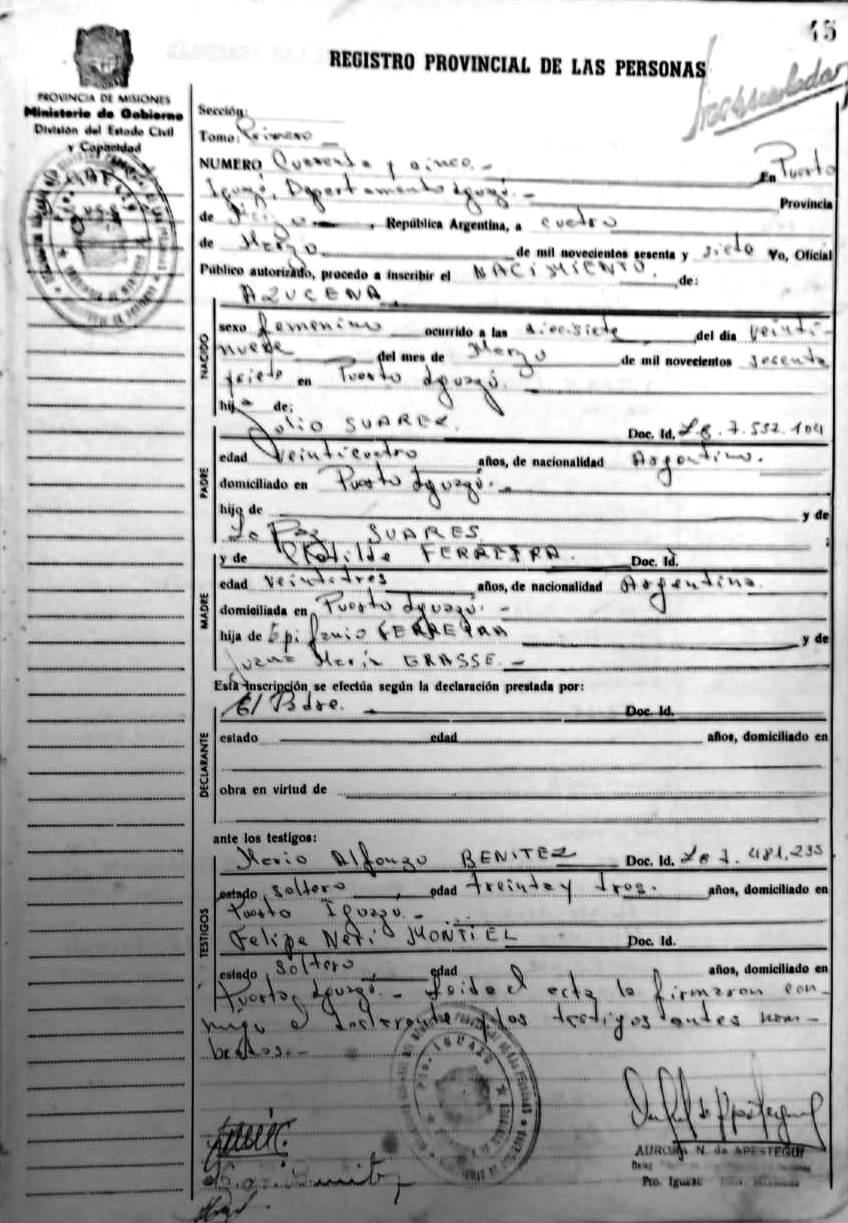 45
REGISTRO PROVINCIAL DE LAS PERSONAS
PROVINCIA DE MISIONES
Ministerio de Gobierno
División del Estado Civil
y Capacidad
Sección:
Tomo: Primero
NUMERO Cuarenta y cinco.- En Puerto
Iguazú, Departamento Iguazú.- Provincia
de República Argentina, a cuatro
de Marzo de mil novecientos sesenta y siete Yo, Oficial
Público autorizado, procedo a inscribir el NACIMIENTO. de:
AZUCENA
NACIDO
sexo femenino ocurrido a las diecisiete del día veinti-
nueve del mes de Marzo de mil novecientos sesenta
y siete en Puerto Iguazú.
hija de:
Julio SUAREZ. Doc. Id. 7.552.104
PADRE
edad veinticuatro años, de nacionalidad Argentino.
domiciliado en Puerto Iguazú.-
hijo de y de
La Paz SUARES
y de Clotilde FERREIRA. Doc. Id.
MADRE
edad veintitres años, de nacionalidad Argentina.
domiciliada en Puerto Iguazú.-
hija de Epifanio FERREYRA y de
Juana María GRASSE.-
Esta inscripción se efectúa según la declaración prestada por:
El Padre. Doc. Id.
DECLARANTE
estado edad años, domiciliado en
obra en virtud de
ante los testigos:
TESTIGOS
Mario Alfonzo BENITEZ Doc. Id. 7.481.235
estado soltero, edad treinta y tres. años, domiciliado en
Puerto Iguazú.-
Felipe Neri MONTIEL Doc. Id.
estado soltero edad años, domiciliado en
Puerto Iguazú.- Leida el acta la firmaron con-
migo el declarante y los testigos antes nom-
brados.-
AURORA N. de APESTEGUI
Pto. Iguazú